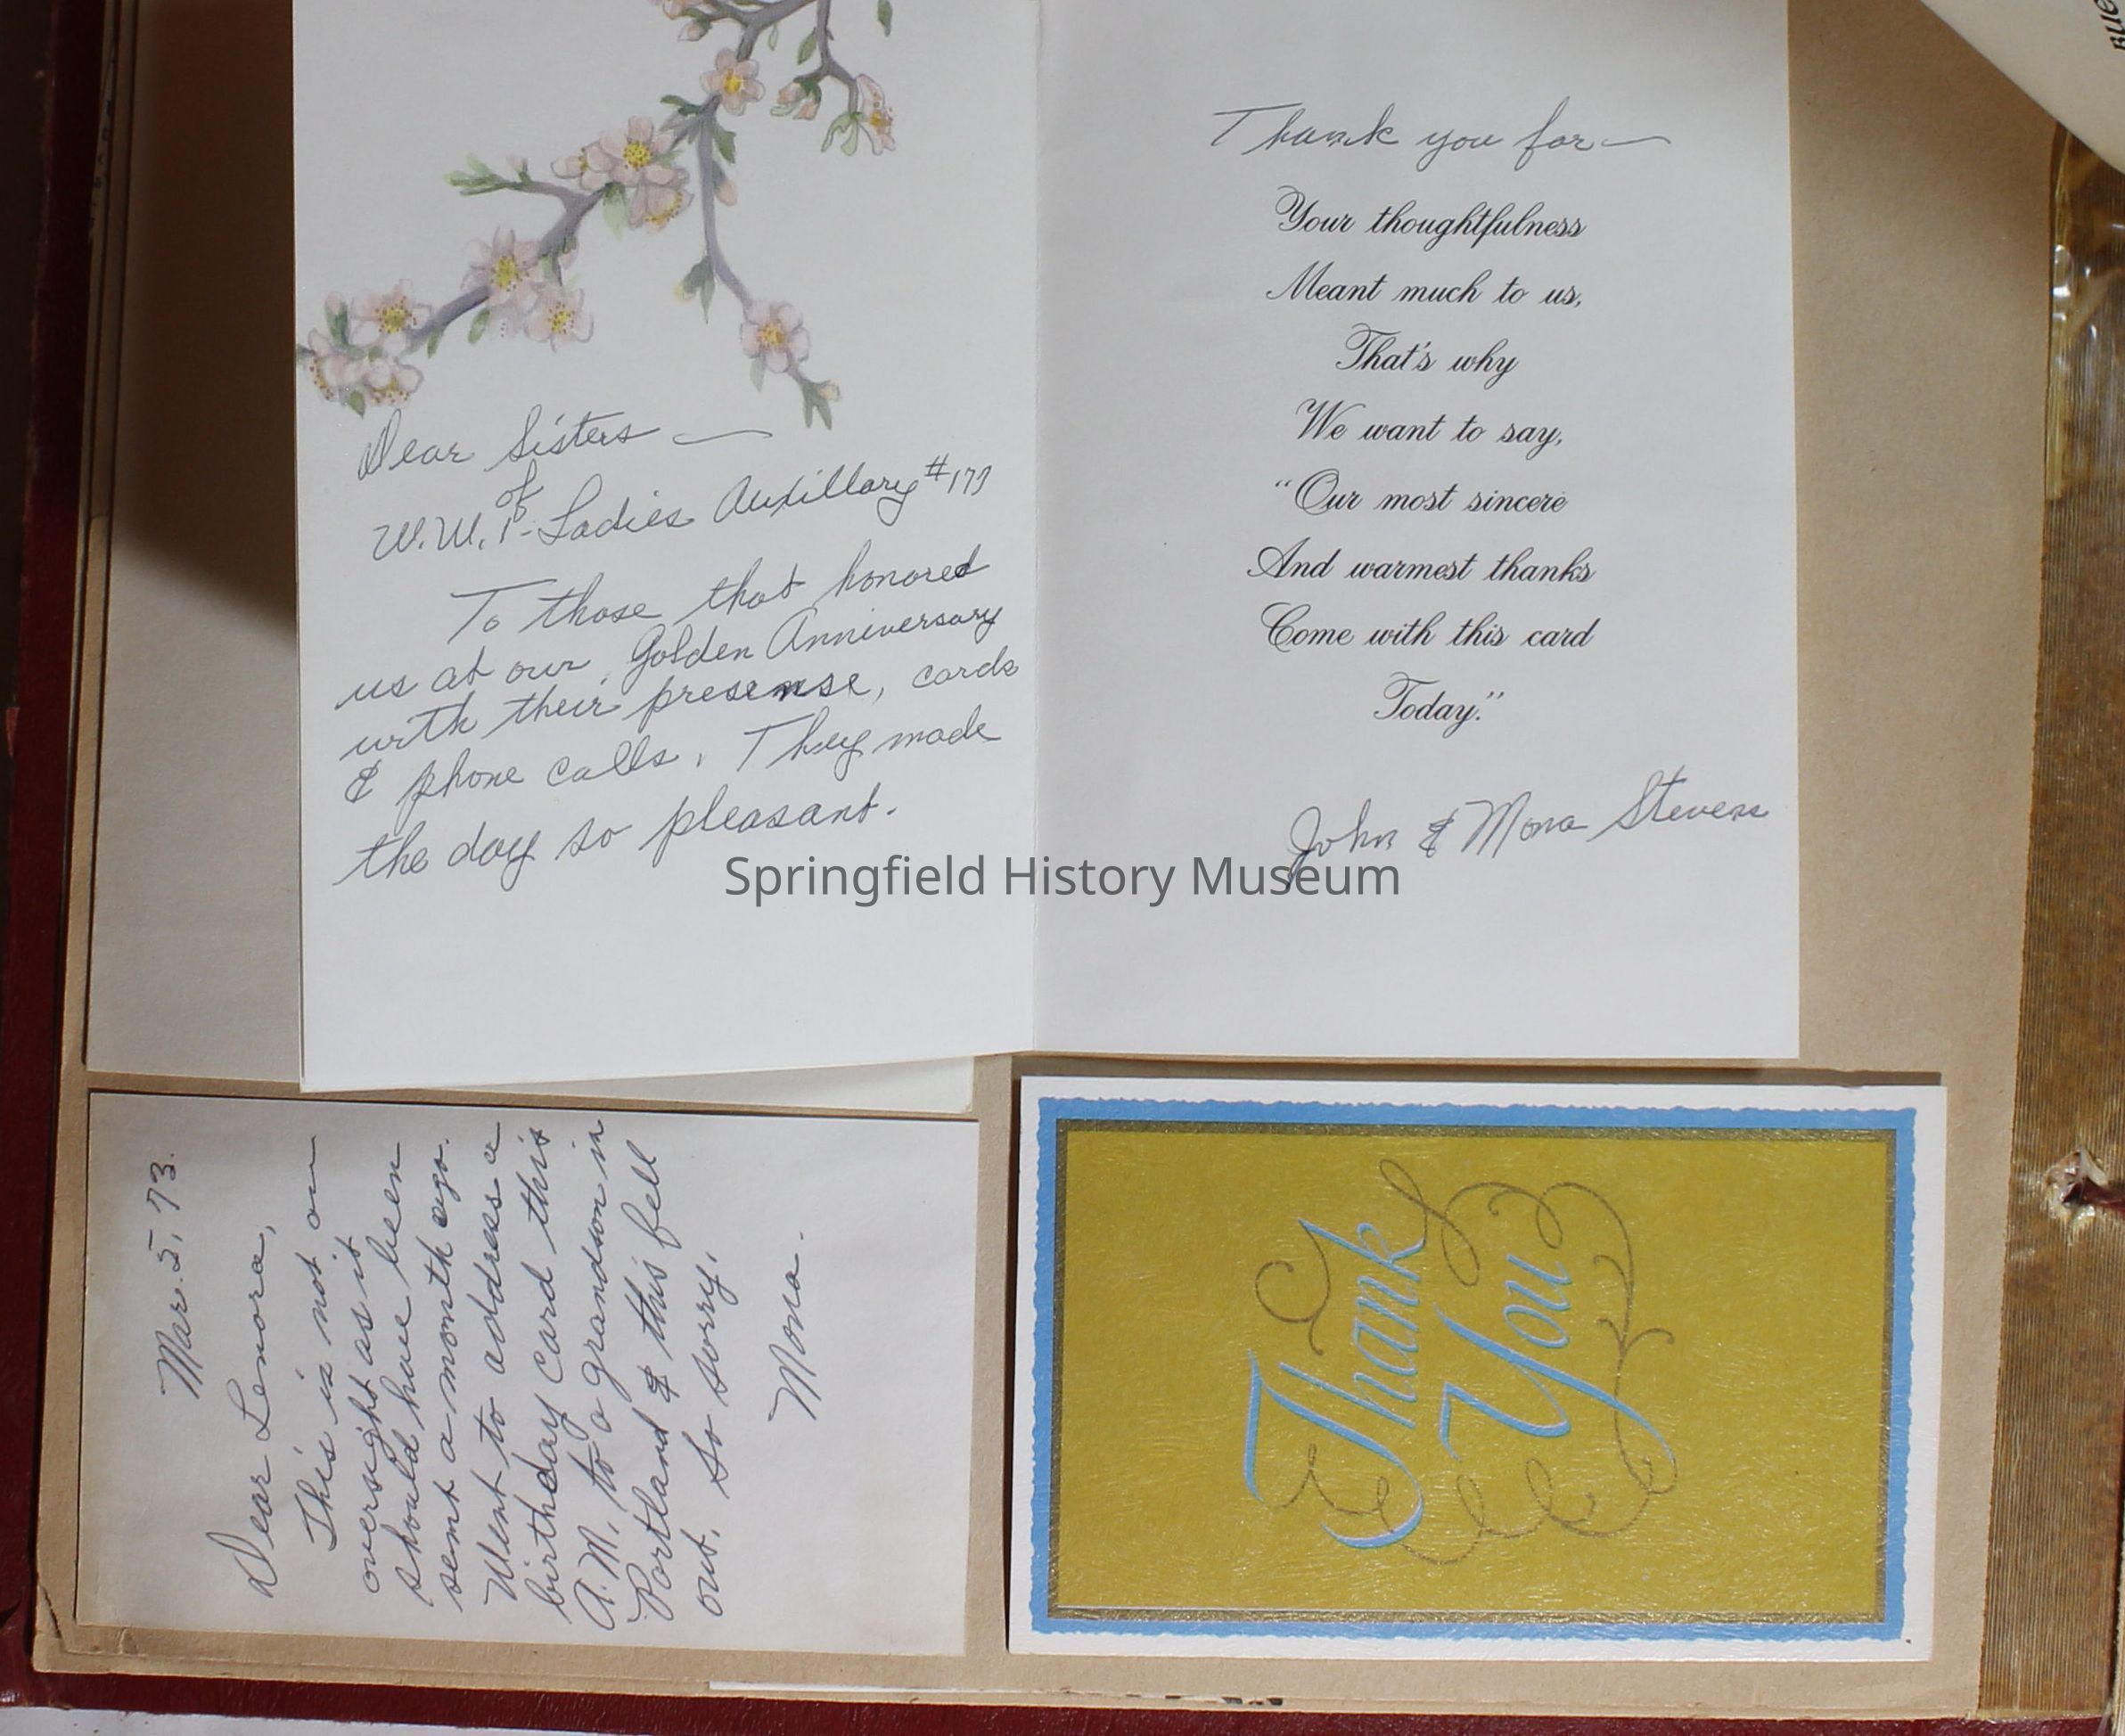 Dear Sisters —
of
W.W.I - Ladies Auxillary #177
To those that honored
us at our Golden Anniversary
with their presense, cards
& phone calls. They made
the day so pleasant.
Thank you for —
Your thoughtfulness
Meant much to us,
That's why
We want to say,
"Our most sincere
And warmest thanks
Come with this card
Today."
John & Mona Stevens
Springfield History Museum
Mar. 5, 73.
Dear Lenora,
This is not an
oversight as it
should have been
sent a month ago.
Went to address a
birthday card this
A.M. to a grandson in
Portland & this fell
out. So sorry.
Mona.
Thank
You